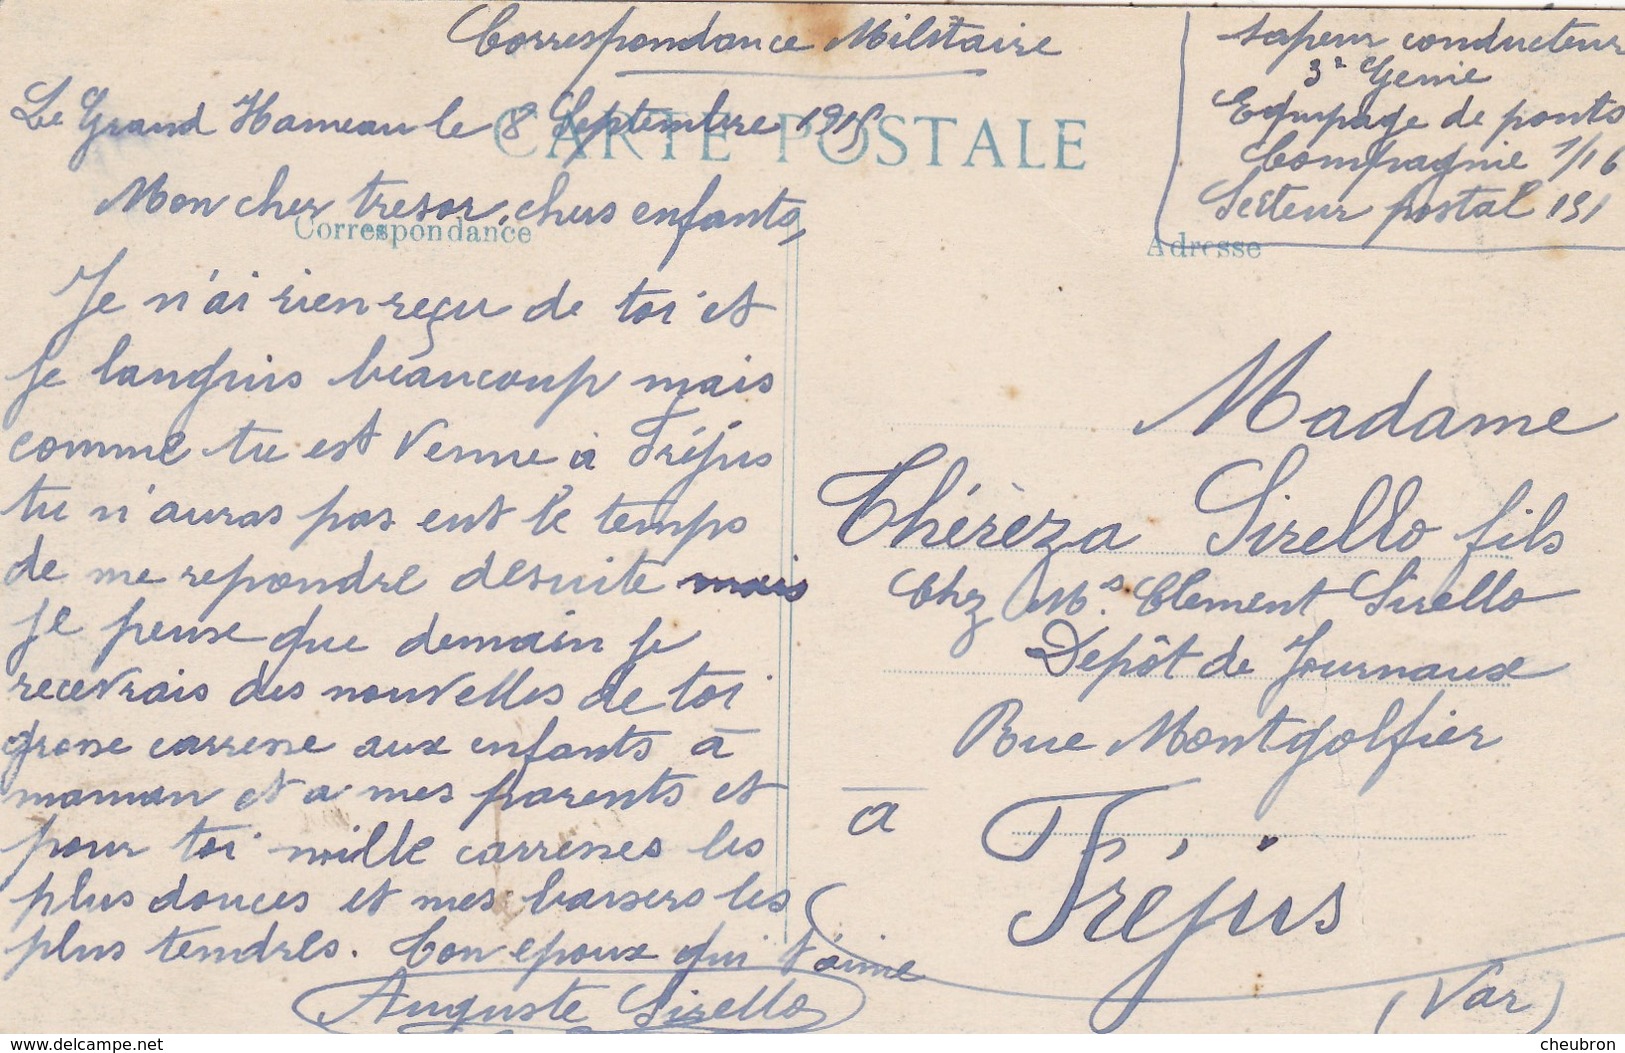 Correspondance Militaire
Le Grand Hameau le 8 Septembre 1915
CARTE POSTALE
Correspondance
Mon cher tresor, chers enfants,
Je n'ai rien reçu de toi et
je languis beaucoup mais
comme tu est venue à Fréjus
tu n'auras pas eut le temps
de me repondre desuite mais
je pense que demain je
recevrais des nouvelles de toi
grose carrese aux enfants à
maman et a mes parents et
pour toi mille carreses les
plus douces et mes baisers les
plus tendres. Ton epoux qui t'aime
Auguste Sirello
sapeur conducteur
3e Genie
Equipage de ponts
Compagnie 7/16
Secteur postal 151
Adresse
Madame
Théreza Sirello fils
Chez Ms. Clement Sirello
Depôt de Journaux
Rue Montgolfier
a
Fréjus
(Var)
cheubron
www.delcampe.net